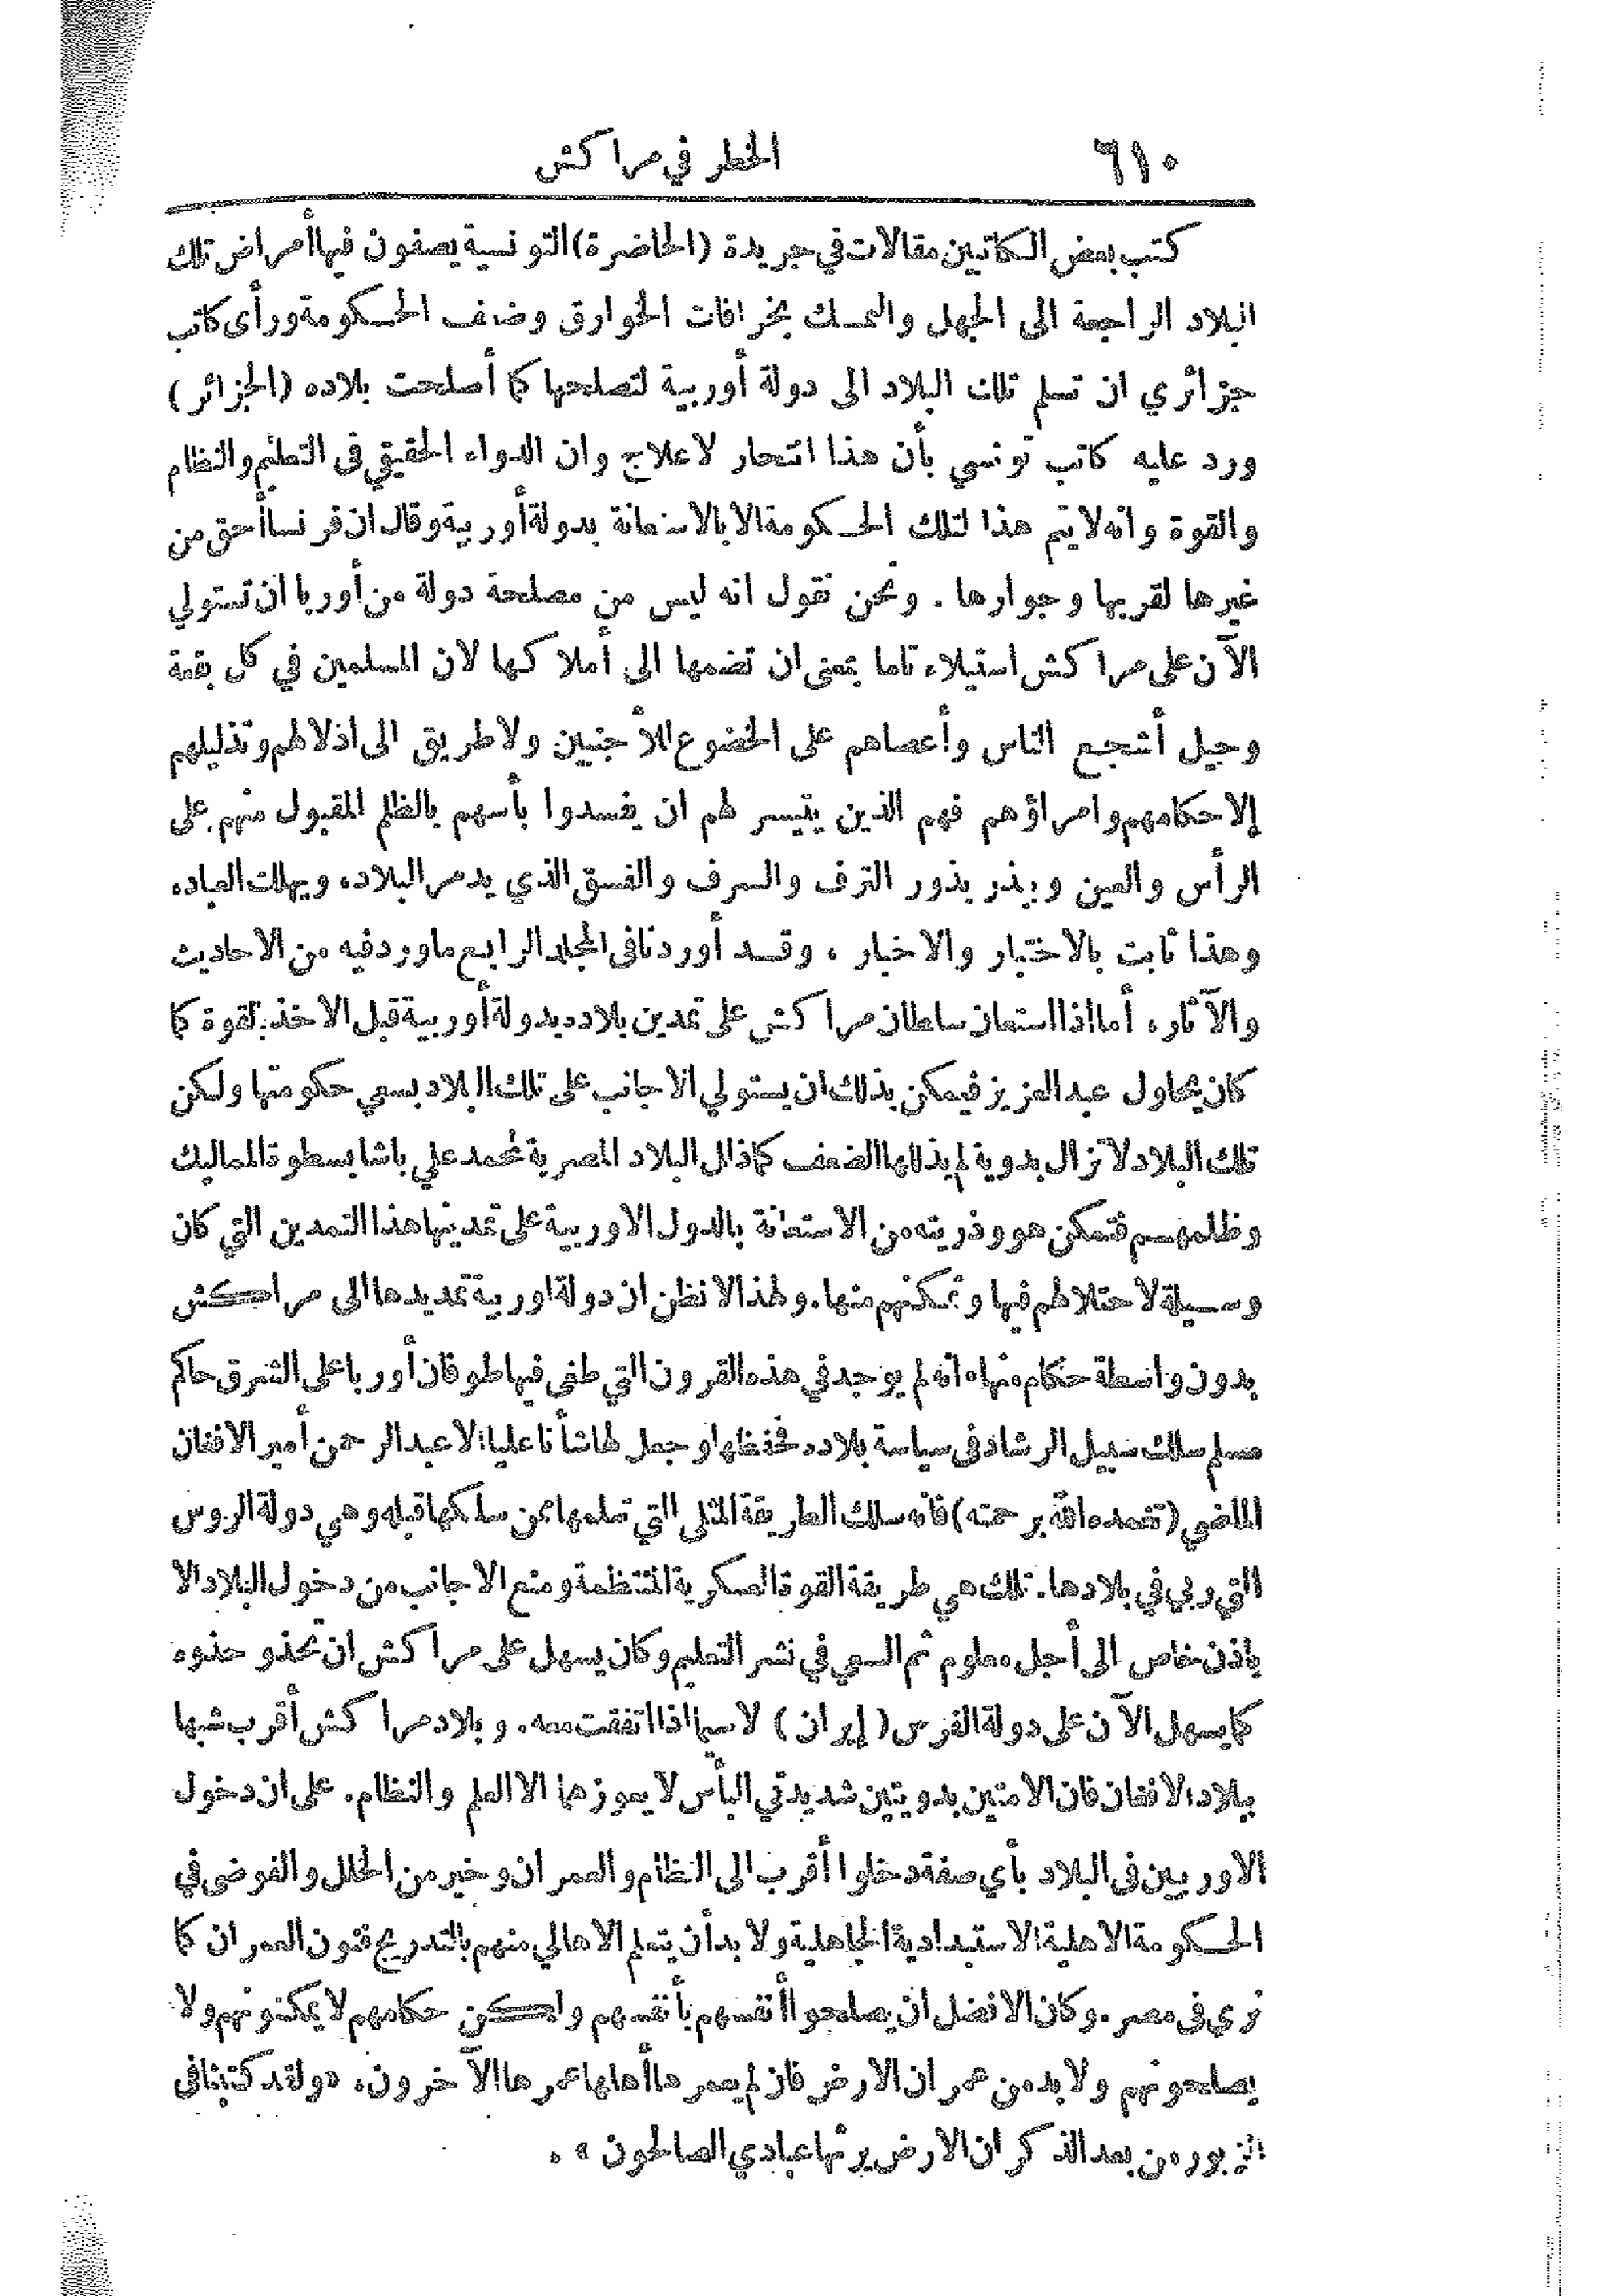 ٦١٠
الخطر في مراكش
كتب بعض الكاتبين مقالات في جريدة (الحاضرة) التونسية يصفون فيها أمراض تلك
البلاد الراجعة الى الجهل والتمسك بخرافات الخوارق وضعف الحكومة ورأى كاتب
جزائري ان تسلم تلك البلاد الى دولة أوربية لتصلحها كما أصلحت بلاده (الجزائر)
ورد عليه كاتب تونسي بأن هذا انتحار لا علاج وان الدواء الحقيقي فى التعليم والنظام
والقوة وانه لا يتم هذا لتلك الحكومة الا بالاستعانة بدولة أوربية وقال ان فرنسا أحق من
غيرها لقربها وجوارها . ونحن نقول انه ليس من مصلحة دولة من أوربا ان تستولي
الآن على مراكش استيلاء تاما بمعنى ان تضمها الى أملاكها لان المسلمين في كل بقعة
وجيل أشجع الناس وأعصاهم على الخضوع للأجنبيين ولا طريق الى اذلالهم وتذليلهم
إلا حكامهم وامراؤهم فهم الذين يتيسر لهم ان يفسدوا بأسهم بالظلم المقبول منهم على
الرأس والعين وبذر بذور الترف والسرف والفسق الذي يدمر البلاد، ويهلك العباد،
وهذا ثابت بالاختبار والاخبار ، وقد أوردنا فى المجلد الرابع ما ورد فيه من الاحاديث
والآثار، أما اذا استعان سلطان مراكش على تمدين بلاده بدولة أوربية قبل الاخذ بالقوة كما
كان يحاول عبد العزيز فيمكن بذلك ان يستولي الاجانب على تلك البلاد بسعي حكومتها ولكن
تلك البلاد لا تزال بدوية لم يذللها الضعف كما ذال البلاد المصرية لمحمد علي باشا بسطوة المماليك
وظلمهم فتمكن هو وذريته من الاستعانة بالدول الاوربية على تمدينها هذا التمدين التي كان
وسيلة لاحتلالهم فيها وتمكنهم منها. ولهذا لا نظن ان دولة اوربية تمد يدها الى مراكش
بدون واسطة حكام منها، انه لم يوجد في هذه القرون التي طغى فيها طوفان أوربا على الشرق حاكم
مسلم سلك سبيل الرشاد فى سياسة بلاده فحفظها وجعل لها شأنا عليا الا عبد الرحمن أمير الافغان
الماضي (تغمده الله برحمته) فانه سلك الطريقة المثلى التي تعلمها ممن سلكها قبله وهي دولة الروس
التي ربي في بلادها. تلك هي طريقة القوة العسكرية المنتظمة ومنع الاجانب من دخول البلاد الا
باذن خاص الى أجل معلوم ثم السعي في نشر التعليم وكان يسهل على مراكش ان تحذو حذوه
كما يسهل الآن على دولة الفرس (إيران) لا سيما اذا اتفقت معه. وبلاد مراكش أقرب شبها
ببلاد الافغان فان الامتين بدويتين شديدتي البأس لا يعوزهما الا العلم والنظام. على ان دخول
الاوربيين فى البلاد بأي صفة دخلوا أقرب الى النظام والعمران وخير من الخلل والفوضى في
الحكومة الاهلية الاستبدادية الجاهلية ولا بد أن يتعلم الاهالي منهم بالتدريج فنون العمران كما
نرى فى مصر. وكان الافضل ان يصلحوا أنفسهم بأنفسهم ولكن حكامهم لا يمكنونهم ولا
يصلحونهم ولا بد من عمران الارض فان لم يعمرها أهلها عمرها الآخرون، «ولقد كتبنا فى
الزبور من بعد الذكر ان الارض يرثها عبادي الصالحون » .